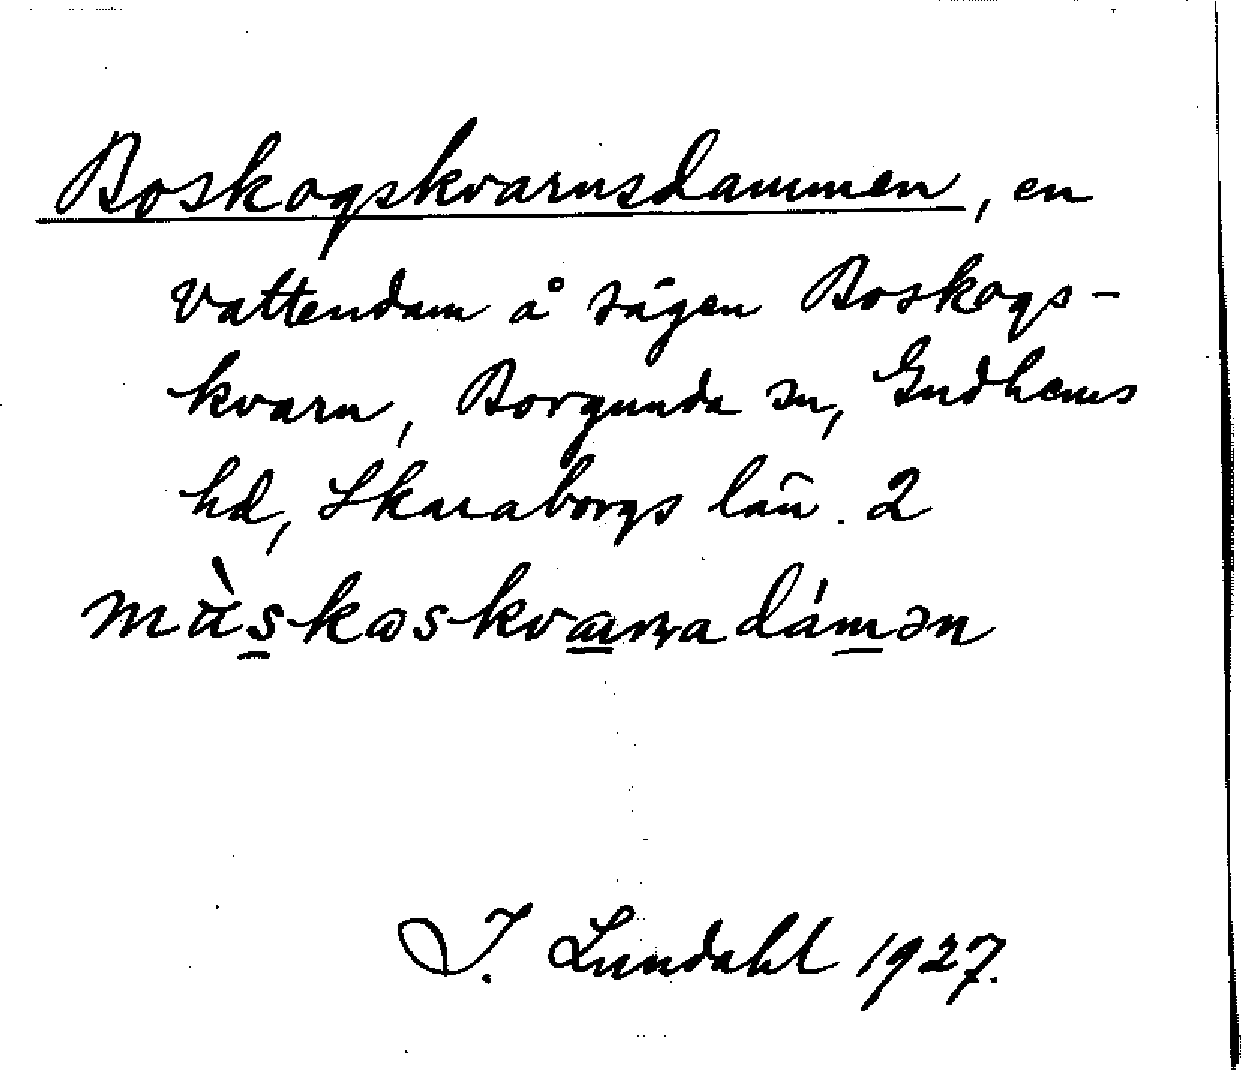 Boskogskvarnsdammen, en
vattendam å sågen Boskogs-
kvarn, Borgunda sn, Gudhems
hd, Skaraborgs län. 2
màskəskvarnadámən
J. Lundahl 1927.